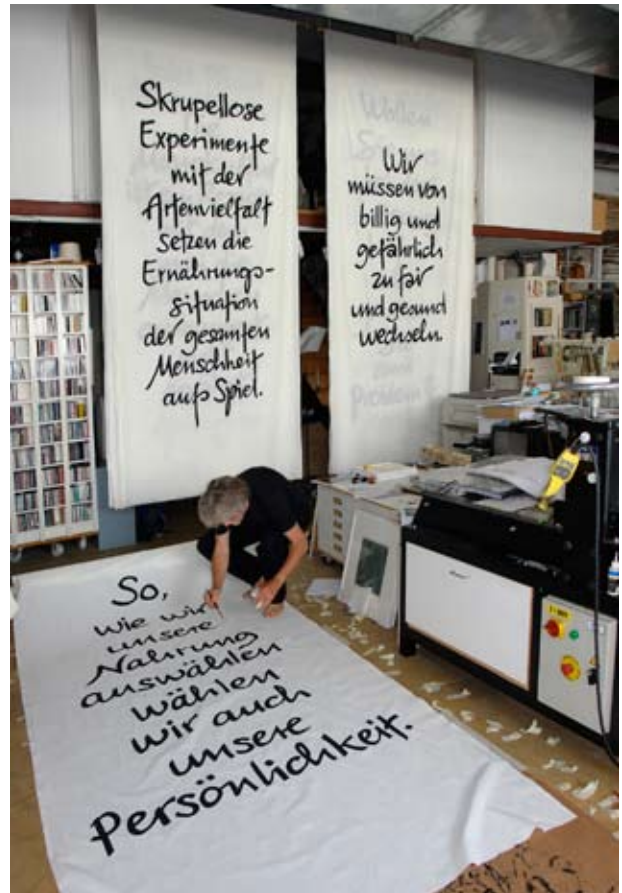 Skrupellose
Experimente
mit der
Artenvielfalt
setzen die
Ernährungs-
situation
der gesamten
Menschheit
aufs Spiel.
Wollen
Wir
müssen von
billig und
gefährlich
zu fair
und gesund
wechseln.
Problem
So,
wie wir
unsere
Nahrung
auswählen
wählen
wir auch
unsere
Persönlichkeit.